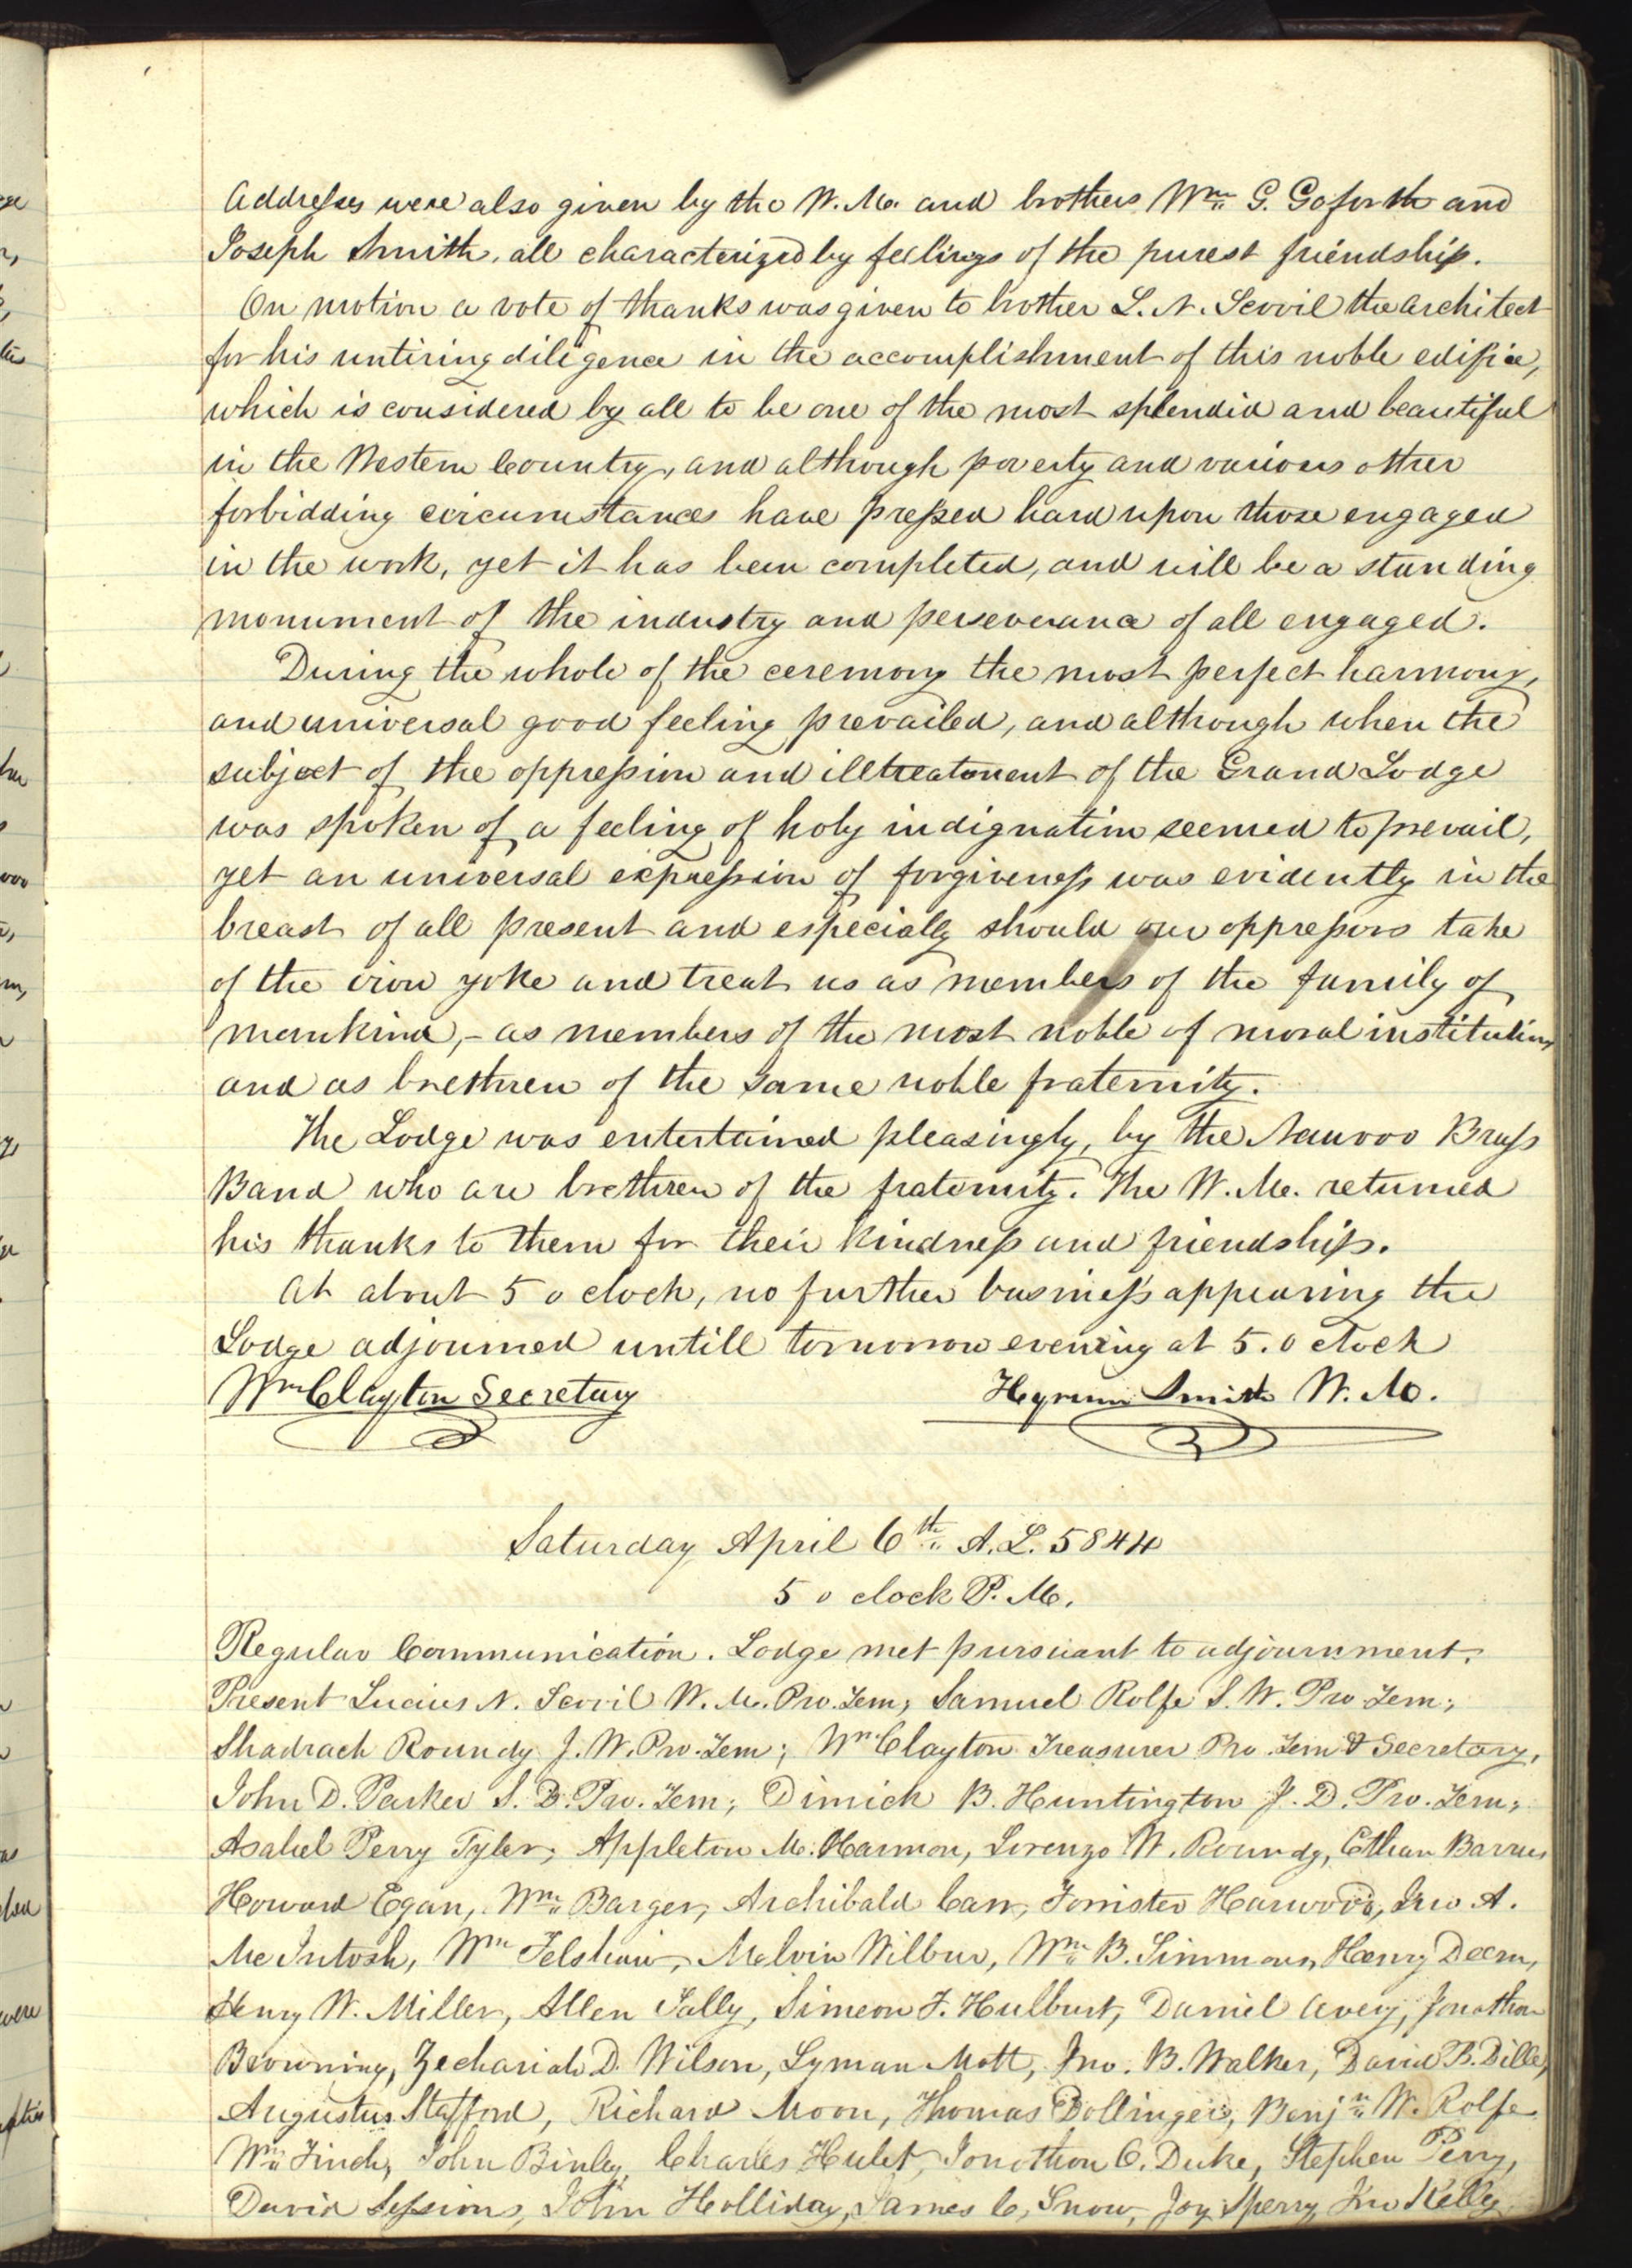 Addresses were also given by the W. M. and brothers Wm. G. Goforth and
Joseph Smith, all characterized by feelings of the purest friendship.
On motion a vote of thanks was given to brother L. N. Scovil the architect
for his untiring diligence in the accomplishment of this noble edifice,
which is considered by all to be one of the most splendid and beautiful
in the Western Country, and although poverty and various other
forbidding circumstances have pressed hard upon those engaged
in the work, yet it has been completed, and will be a standing
monument of the industry and perseverance of all engaged.
During the whole of the ceremony the most perfect harmony,
and universal good feeling prevailed, and although when the
subject of the oppression and illtreatment of the Grand Lodge
was spoken of a feeling of holy indignation seemed to prevail,
yet an universal expression of forgiveness was evidently in the
breast of all present and especially should our oppressors take
of the iron yoke and treat us as members of the family of
mankind,- as members of the most noble of moral institutions
and as brethren of the same noble fraternity.
The Lodge was entertained pleasingly, by the Nauvoo Brass
Band who are brethren of the fraternity. The W. M. returned
his thanks to them for their kindness and friendship.
At about 5 o clock, no further business appearing the
Lodge adjourned untill tomorrow evening at 5. o clock
Wm Clayton Secretary Hyrum Smith W. M.
Saturday April 6th A. L. 5844
5 o clock P. M.
Regular Communication. Lodge met pursuant to adjournment.
Present Lucius N. Scovil W. M. Pro. Tem; Samuel Rolfe S. W. Pro Tem;
Shadrach Roundy J. W. Pro. Tem; Wm Clayton Treasurer Pro. Tem & Secretary,
John D. Parker S. D. Pro. Tem; Dimick B. Huntington J. D. Pro. Tem;
Asahel Perry Tyler; Appleton M. Harmon, Lorenzo W. Roundy, Ethan Barrus
Howard Egan, Wm. Barger, Archibald Carr, Forrister Harwood, Jno A.
McIntosh, Wm Felshaw, Melvin Wilbur, Wm. B. Simmons, Henry Deam,
Henry W. Miller, Allen Tally, Simeon F. Hulburt, Daniel Avery, Jonathan
Browning, Zechariah D. Wilson, Lyman Mott, Jno. B. Walker, David B. Dille,
Augustus Stafford, Richard Moon, Thomas Dollinger, Benjn W. Rolfe
Wm. Finch, John Binley, Charles Hulet, Jonathan C. Duke, Stephen Perry,
David Sessions, John Holliday, James C. Snow, Joy Sperry, Jno Kelly